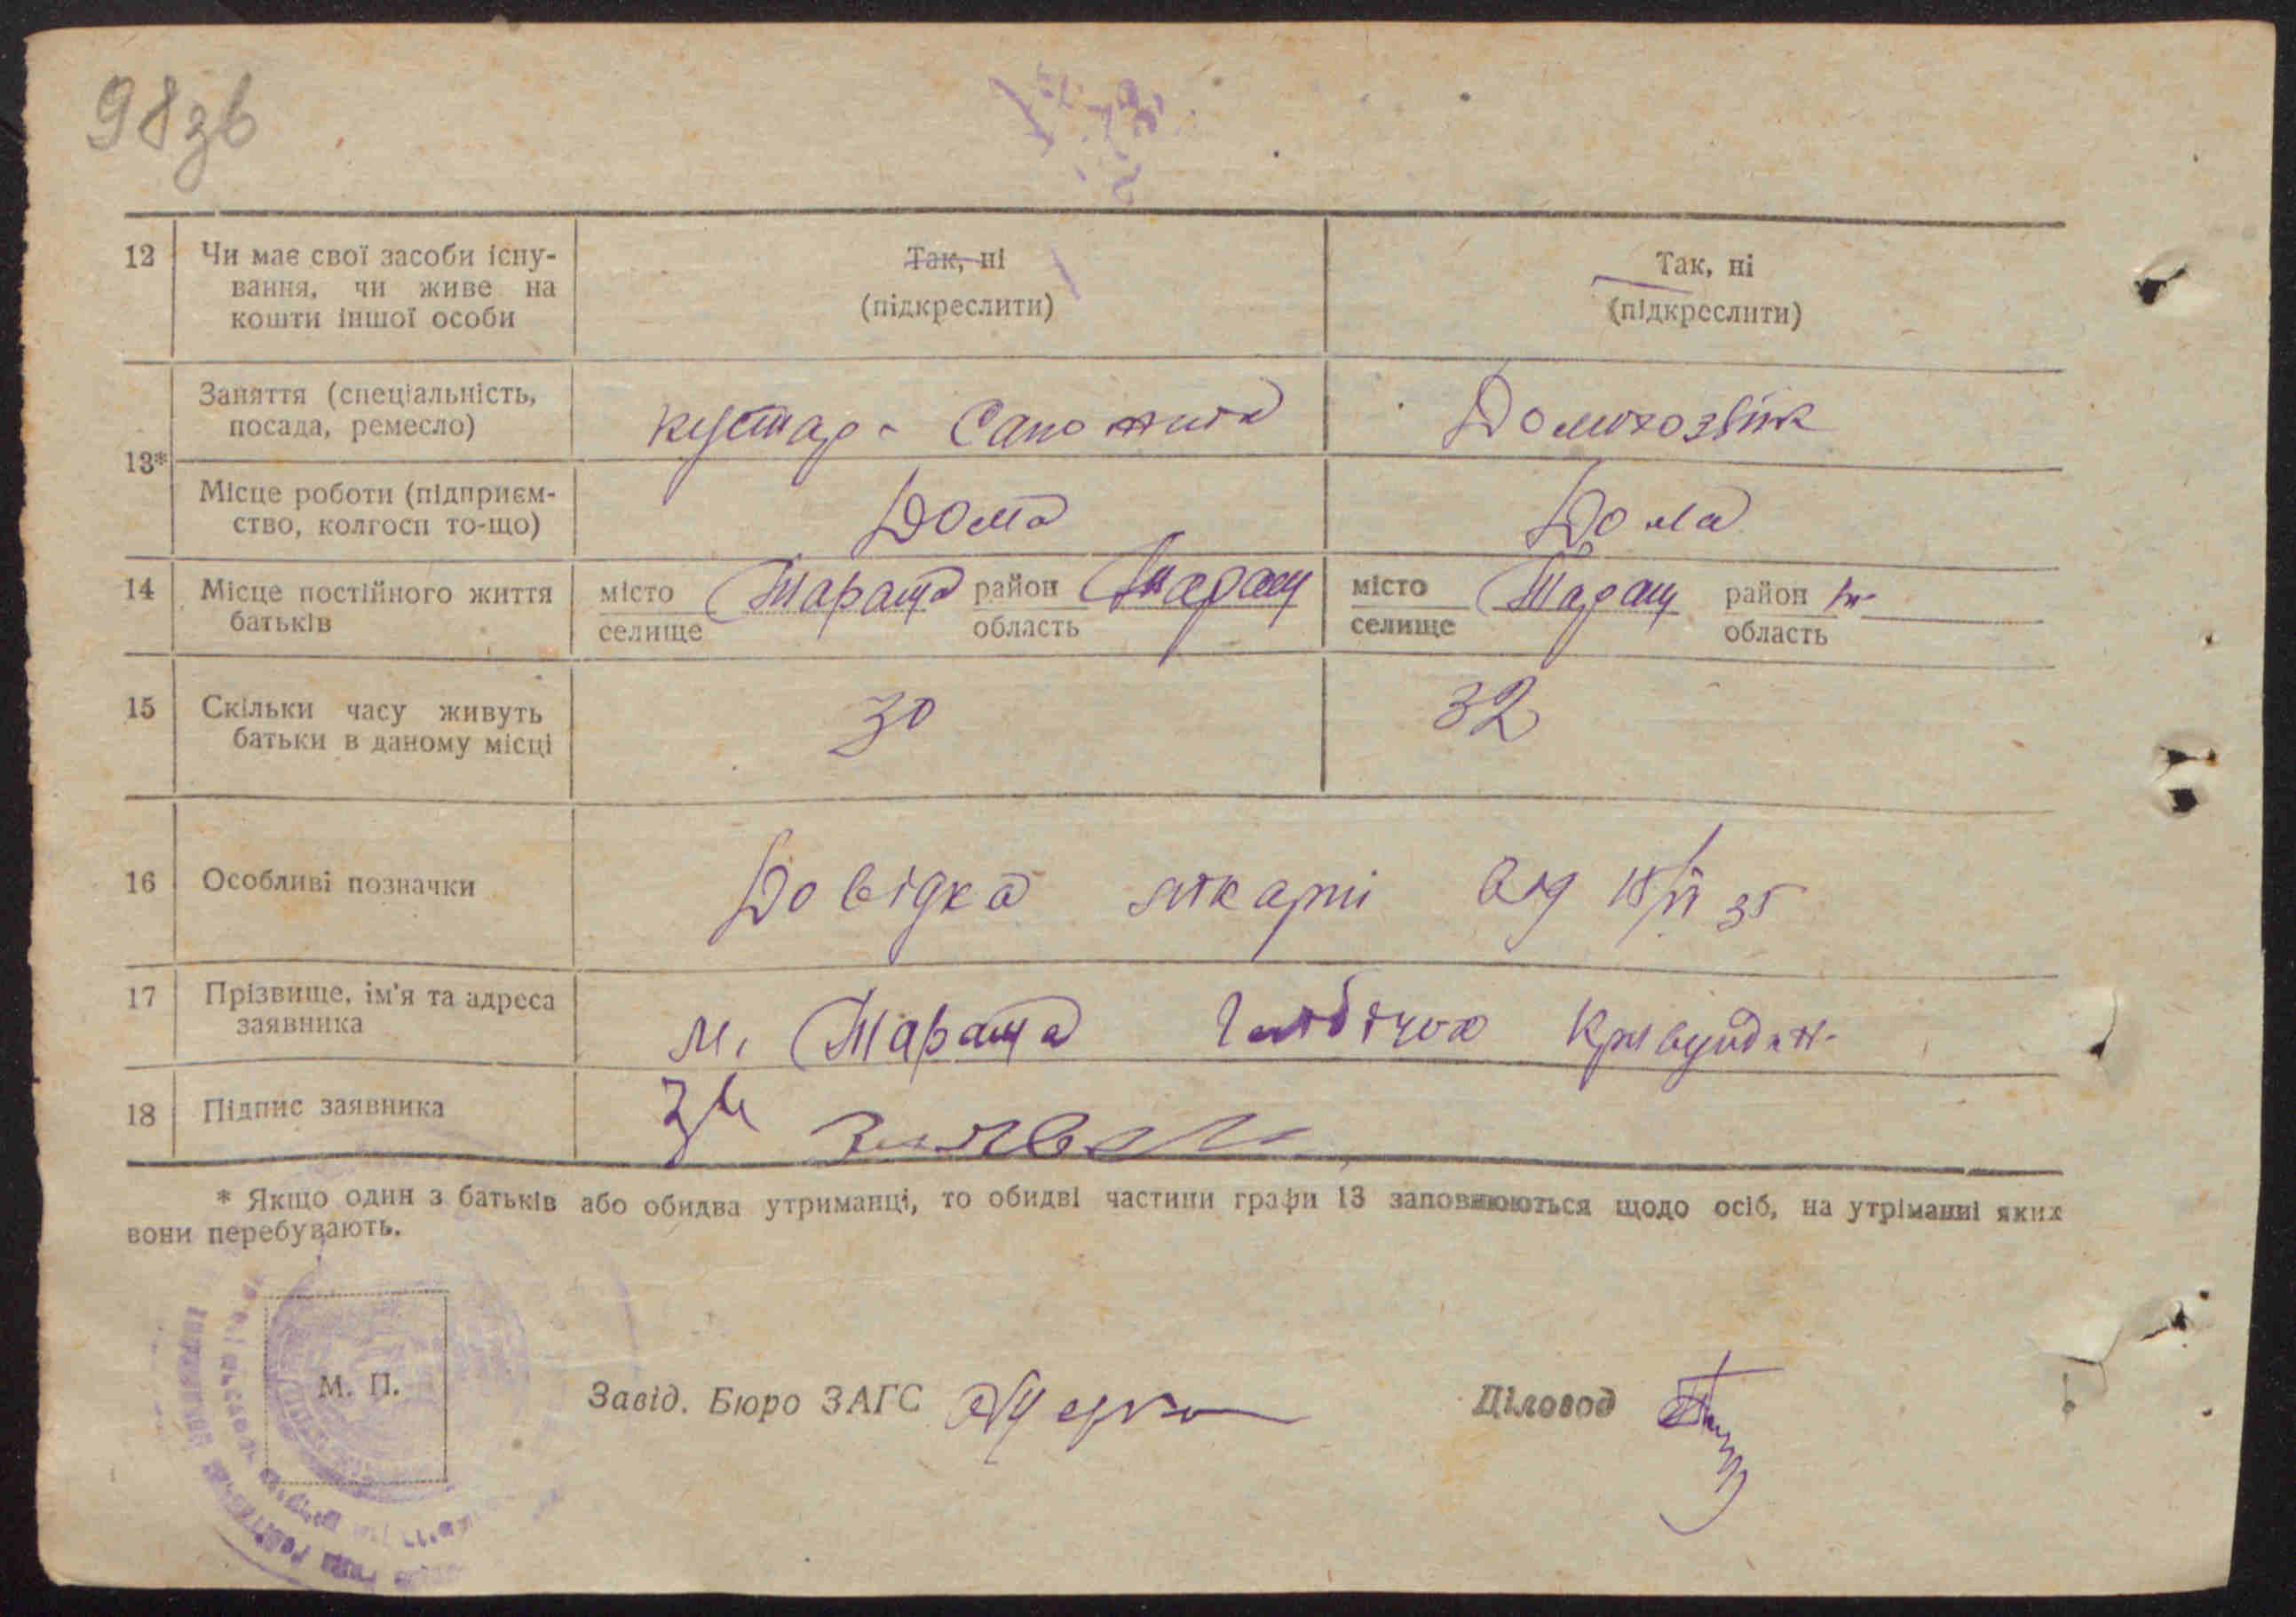 98зв
12 Чи має свої засоби існу-
вання, чи живе на
кошти іншої особи
Так, ні
(підкреслити)
Так, ні
(підкреслити)
13*
Заняття (спеціальність,
посада, ремесло)
кустар - Сапожник
Домохозяйк
Місце роботи (підприєм-
ство, колгосп то-що)
Дома
Дома
14 Місце постійного життя
батьків
місто Тараща район Таращ
селище область
місто Таращ район
селище область
15 Скільки часу живуть
батьки в даному місці
30
32
16 Особливі позначки
Довідка лікарні від 18/VI 35
17 Прізвище, ім'я та адреса
заявника
м. Тараща
18 Підпис заявника
* Якщо один з батьків або обидва утриманці, то обидві частини графи 13 заповнюються щодо осіб, на утріманні яких
вони перебувають.
М. П.
Завід. Бюро ЗАГС
Діловод